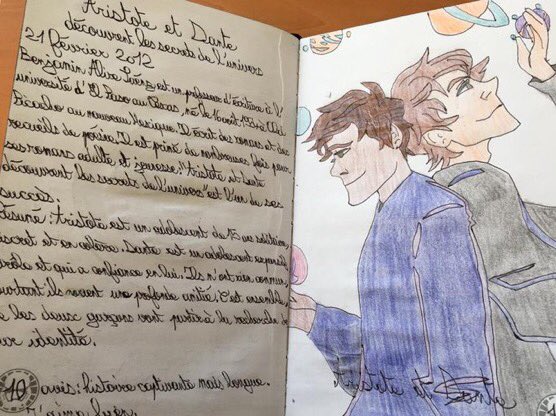 Aristote et Dante
découvrent les secrets de l'univers
21 février 2012
Benjamin Alire Sáenz est un professeur d'écriture à l'
université d'El Paso au né le 16 août 1954 à Old
Picacho au nouveau Mexique. Il écrit des romans et des
recueils de poésie. Il est primé de nombreuses fois pour
ses romans adulte et jeunesse. "Aristote et Dante
découvrent les secrets de l'univers" est l'un de ses
succès.
ésumé : Aristote est un adolescent de 15 ans solitaire,
et en colère. Dante est un adolescent
drôle et qui a confiance en lui. Ils n'ont rien
pourtant ils nouent une profonde amitié. C'est ensemble
e les deux garçons vont partir à la recherche
eur identité.
10 avis : histoire captivante mais longue.
Aristote et Dante